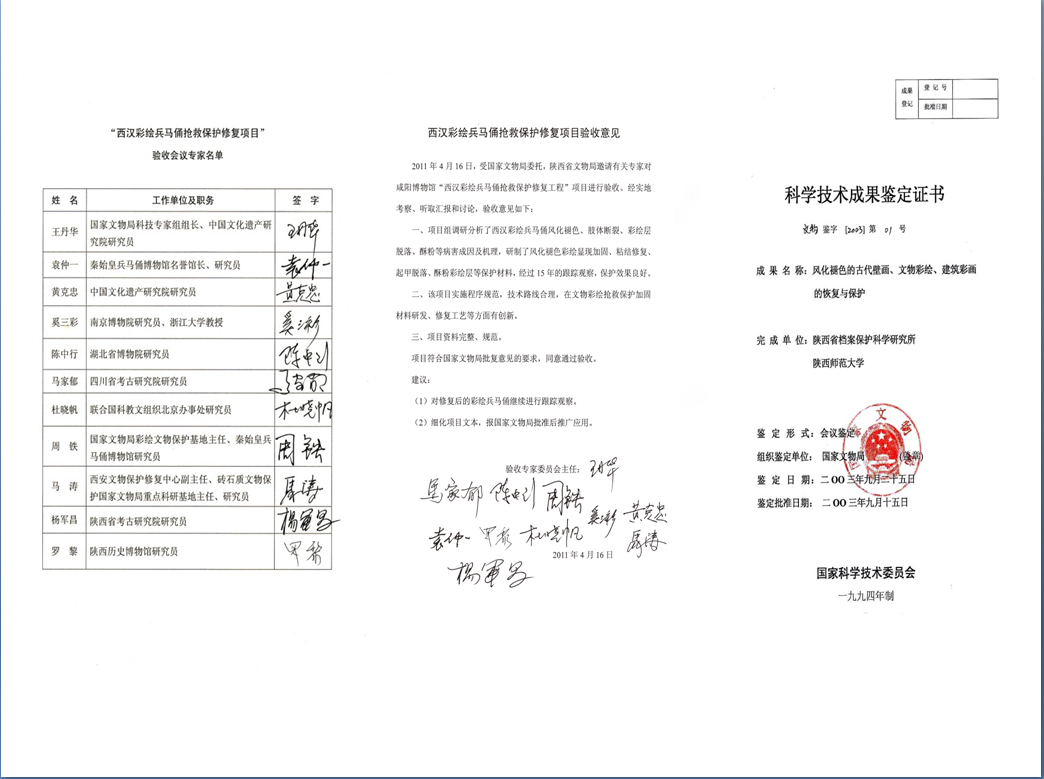 “西汉彩绘兵马俑抢救保护修复项目”
验收会议专家名单
姓 名 工作单位及职务 签 字
王丹华 国家文物局科技专家组组长、中国文化遗产研
究院研究员
袁仲一 秦始皇兵马俑博物馆名誉馆长、研究员 袁仲一
黄克忠 中国文化遗产研究院研究员 黄克忠
奚三彩 南京博物院研究员、浙江大学教授
陈中行 湖北省博物院研究员 陈中行
马家郁 四川省考古研究院研究员
杜晓帆 联合国科教文组织北京办事处研究员 杜晓帆
周 铁 国家文物局彩绘文物保护基地主任、秦始皇兵
马俑博物馆研究员 周铁
马 涛 西安文物保护修复中心副主任、砖石质文物保
护国家文物局重点科研基地主任、研究员 马涛
杨军昌 陕西省考古研究院研究员 楊軍昌
罗 黎 陕西历史博物馆研究员 罗黎
西汉彩绘兵马俑抢救保护修复项目验收意见
2011 年 4 月 16 日，受国家文物局委托，陕西省文物局邀请有关专家对
咸阳博物馆“西汉彩绘兵马俑抢救保护修复工程”项目进行验收。经实地
考察、听取汇报和讨论，验收意见如下：
一、项目组调研分析了西汉彩绘兵马俑风化褪色、肢体断裂、彩绘层
脱落、酥粉等病害成因及机理，研制了风化褪色彩绘显现加固、粘结修复、
起甲脱落、酥粉彩绘层等保护材料，经过 15 年的跟踪观察，保护效果良好。
二、该项目实施程序规范，技术路线合理，在文物彩绘抢救保护加固
材料研发、修复工艺等方面有创新。
三、项目资料完整、规范。
项目符合国家文物局批复意见的要求，同意通过验收。
建议：
（1）对修复后的彩绘兵马俑继续进行跟踪观察。
（2）细化项目文本，报国家文物局批准后推广应用。
验收专家委员会主任：
馬家郁 陈中行 周铁 黄克忠
袁仲一 罗黎 杜晓帆 马涛
2011 年 4 月 16 日
楊軍昌
成果
登记
登 记 号
批准日期
科学技术成果鉴定证书
文物 鉴字 [2003] 第 01 号
成 果 名 称：风化褪色的古代壁画、文物彩绘、建筑彩画
的恢复与保护
完 成 单 位：陕西省档案保护科学研究所
陕西师范大学
鉴 定 形 式：会议鉴定
组织鉴定单位： 国家文物局 (盖章)
鉴 定 日 期：二 OO 三年九月二十五日
鉴定批准日期： 二 OO 三年九月十五日
国家科学技术委员会
一九九四年制